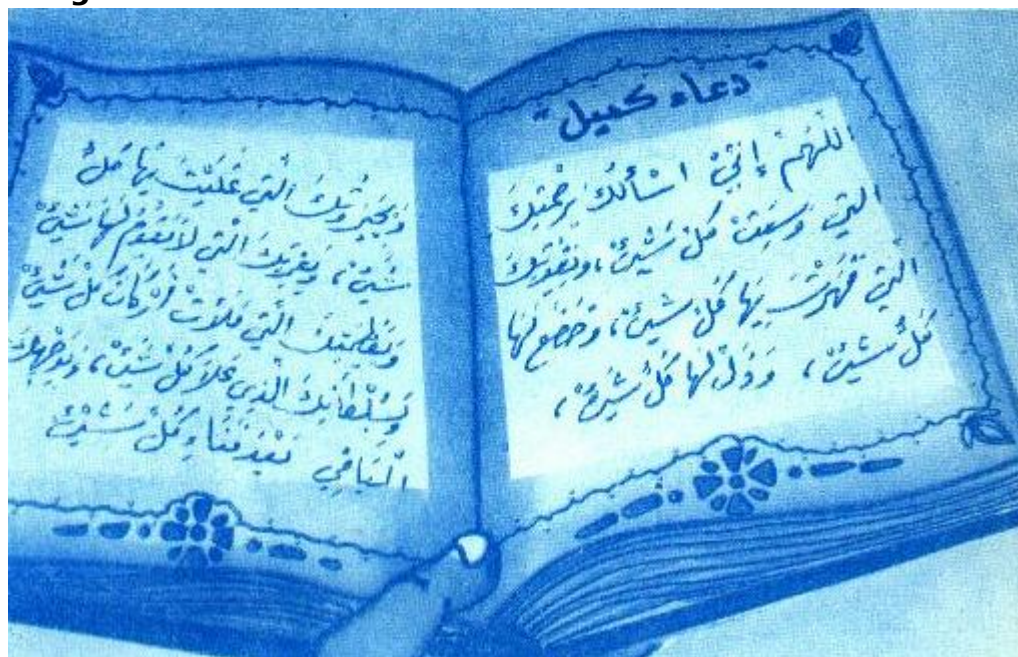 "دعاء كميل"
اللّهُمَّ إِنِّيْ اسْأَلُكَ بِرَحْمَتِكَ
الَّتِي وَسِعَتْ كُلَّ شَيْئٍ، وَبِقُوَّتِكَ
الَّتِي قَهَرْتَ بِهَا كُلَّ شَيْئٍ، وَخَضَعَ لَهَا
كُلُّ شَيْئٍ، وَذَلَّ لَهَا كُلُّ شَيْئٍ،
وَبِجَبَرُوتِكَ الَّتِي غَلَبْتَ بِهَا كُلَّ
شَيْئٍ، وَبِعِزَّتِكَ الَّتِي لاَ يَقُومُ لَهَا شَيْئٌ
وَبِعَظَمَتِكَ الَّتِي مَلَأَتْ أَرْكَانَ كُلِّ شَيْئٍ
وَبِسُلْطَانِكَ الَّذِي عَلاَ كُلَّ شَيْئٍ، وَبِوَجْهِكَ
الْبَاقِي بَعْدَ فَنَاءِ كُلِّ شَيْئٍ